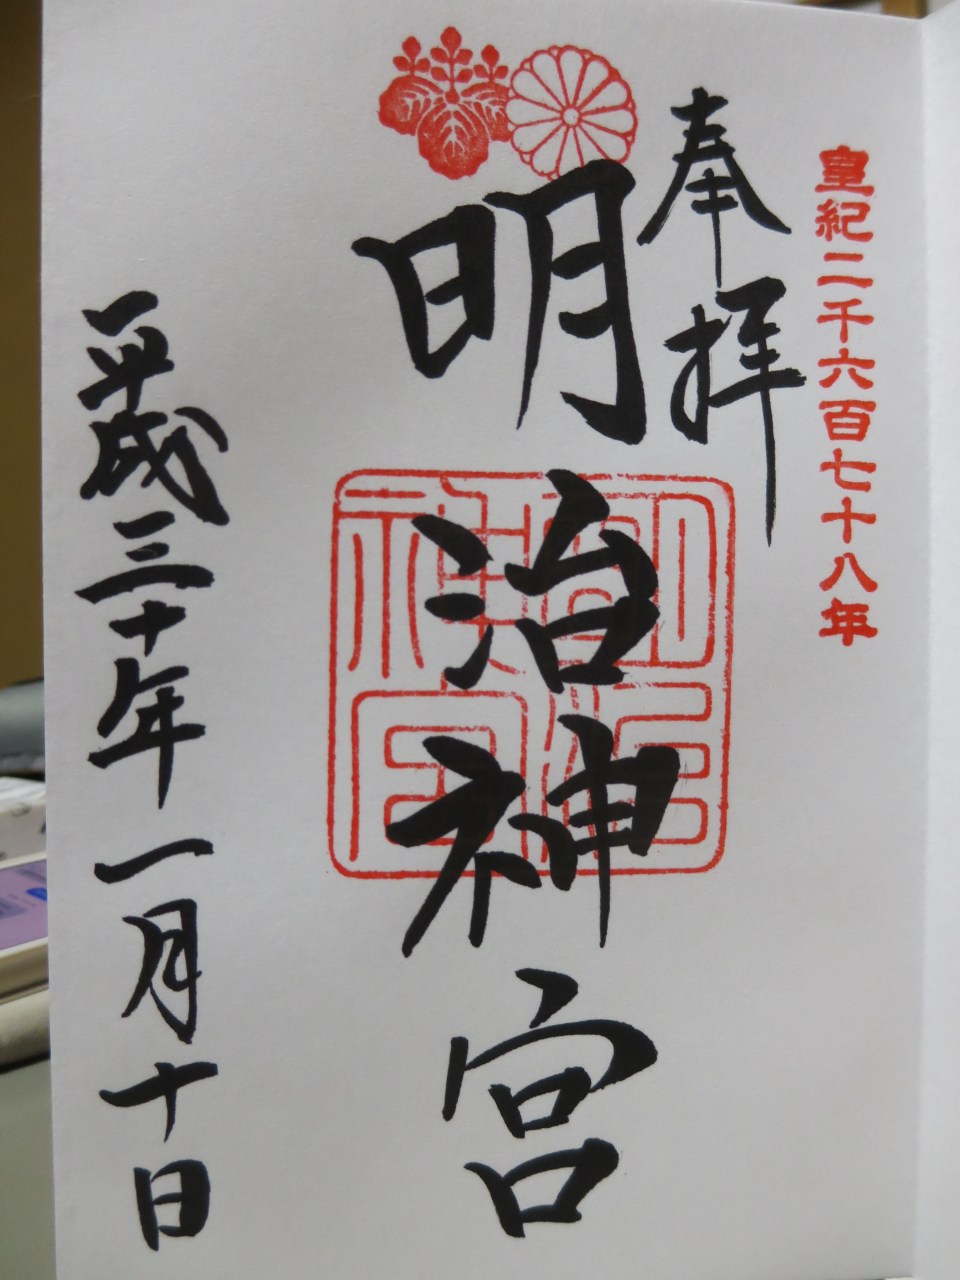 皇紀二千六百七十八年
奉拝
明治神宮
平成三十年一月十日